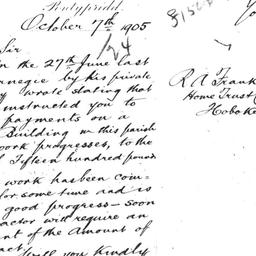 Pontypridd.
October 17th 1905
Sir
n the 27th June last
rnegie by his private
y wrote stating that
instructed you to
payments on a
Building in this parish
work progresses, to the
l Fifteen hundred pound
work has been com-
for some time and is
good progress – soon
actor will require an
nt of the Amount of
act.
Will you Kindly
R A Frank
Home Trust C
Hoboke